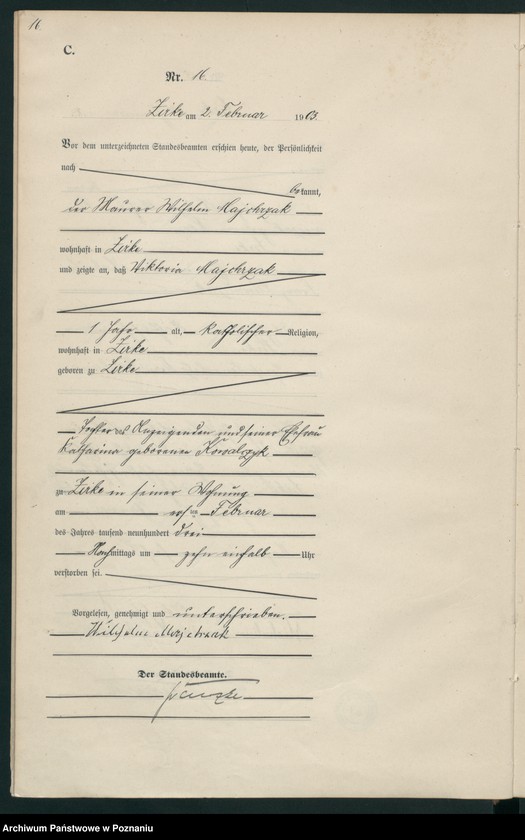 16
C.
Nr. 16.
Zirke am 2. Februar 1903.
Vor dem unterzeichneten Standesbeamten erschien heute, der Persönlichkeit
nach
bekannt,
der Maurer Wilhelm Majchrzak
wohnhaft in Zirke
und zeigte an, daß Viktoria Majchrzak
1 Jahr alt, katholischer Religion,
wohnhaft in Zirke
geboren zu Zirke
Tochter des Anzeigenden und seiner Ehefrau
Katharina geborenen Kowalczyk
zu Zirke in seiner Wohnung
am ersten Februar
des Jahres tausend neunhundert drei
Nachmittags um zehn einhalb Uhr
verstorben sei.
Vorgelesen, genehmigt und unterschrieben.
Wilhelm Majchrzak
Der Standesbeamte.
Archiwum Państwowe w Poznaniu